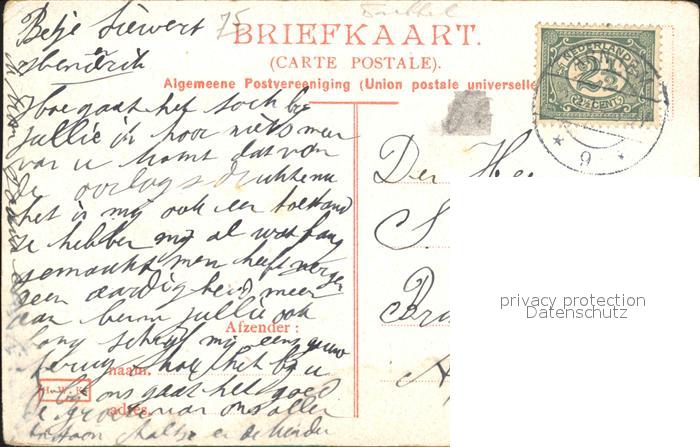 Betje Siewert
75
BRIEFKAART.
(CARTE POSTALE).
Algemeene Postvereeniging (Union postale universelle
NEDERLAND
2½
CENT
9
hoe gaat het toch bij
jullie ik hoor niets meer
van u komt dat van
de oorlogsdrukte
het is mij ook een toestand
ze hebben mij al wat bang
gemaakt men heeft nergens
geen aardigheid meer
aan jullie ook
lang schrijf mij eens gauw
terug hoe het bij u
bij ons gaat het goed
de van ons allen
en de kinder
Afzender:
naam.
adres.
H. W. K.
Den Hee
privacy protection
Datenschutz